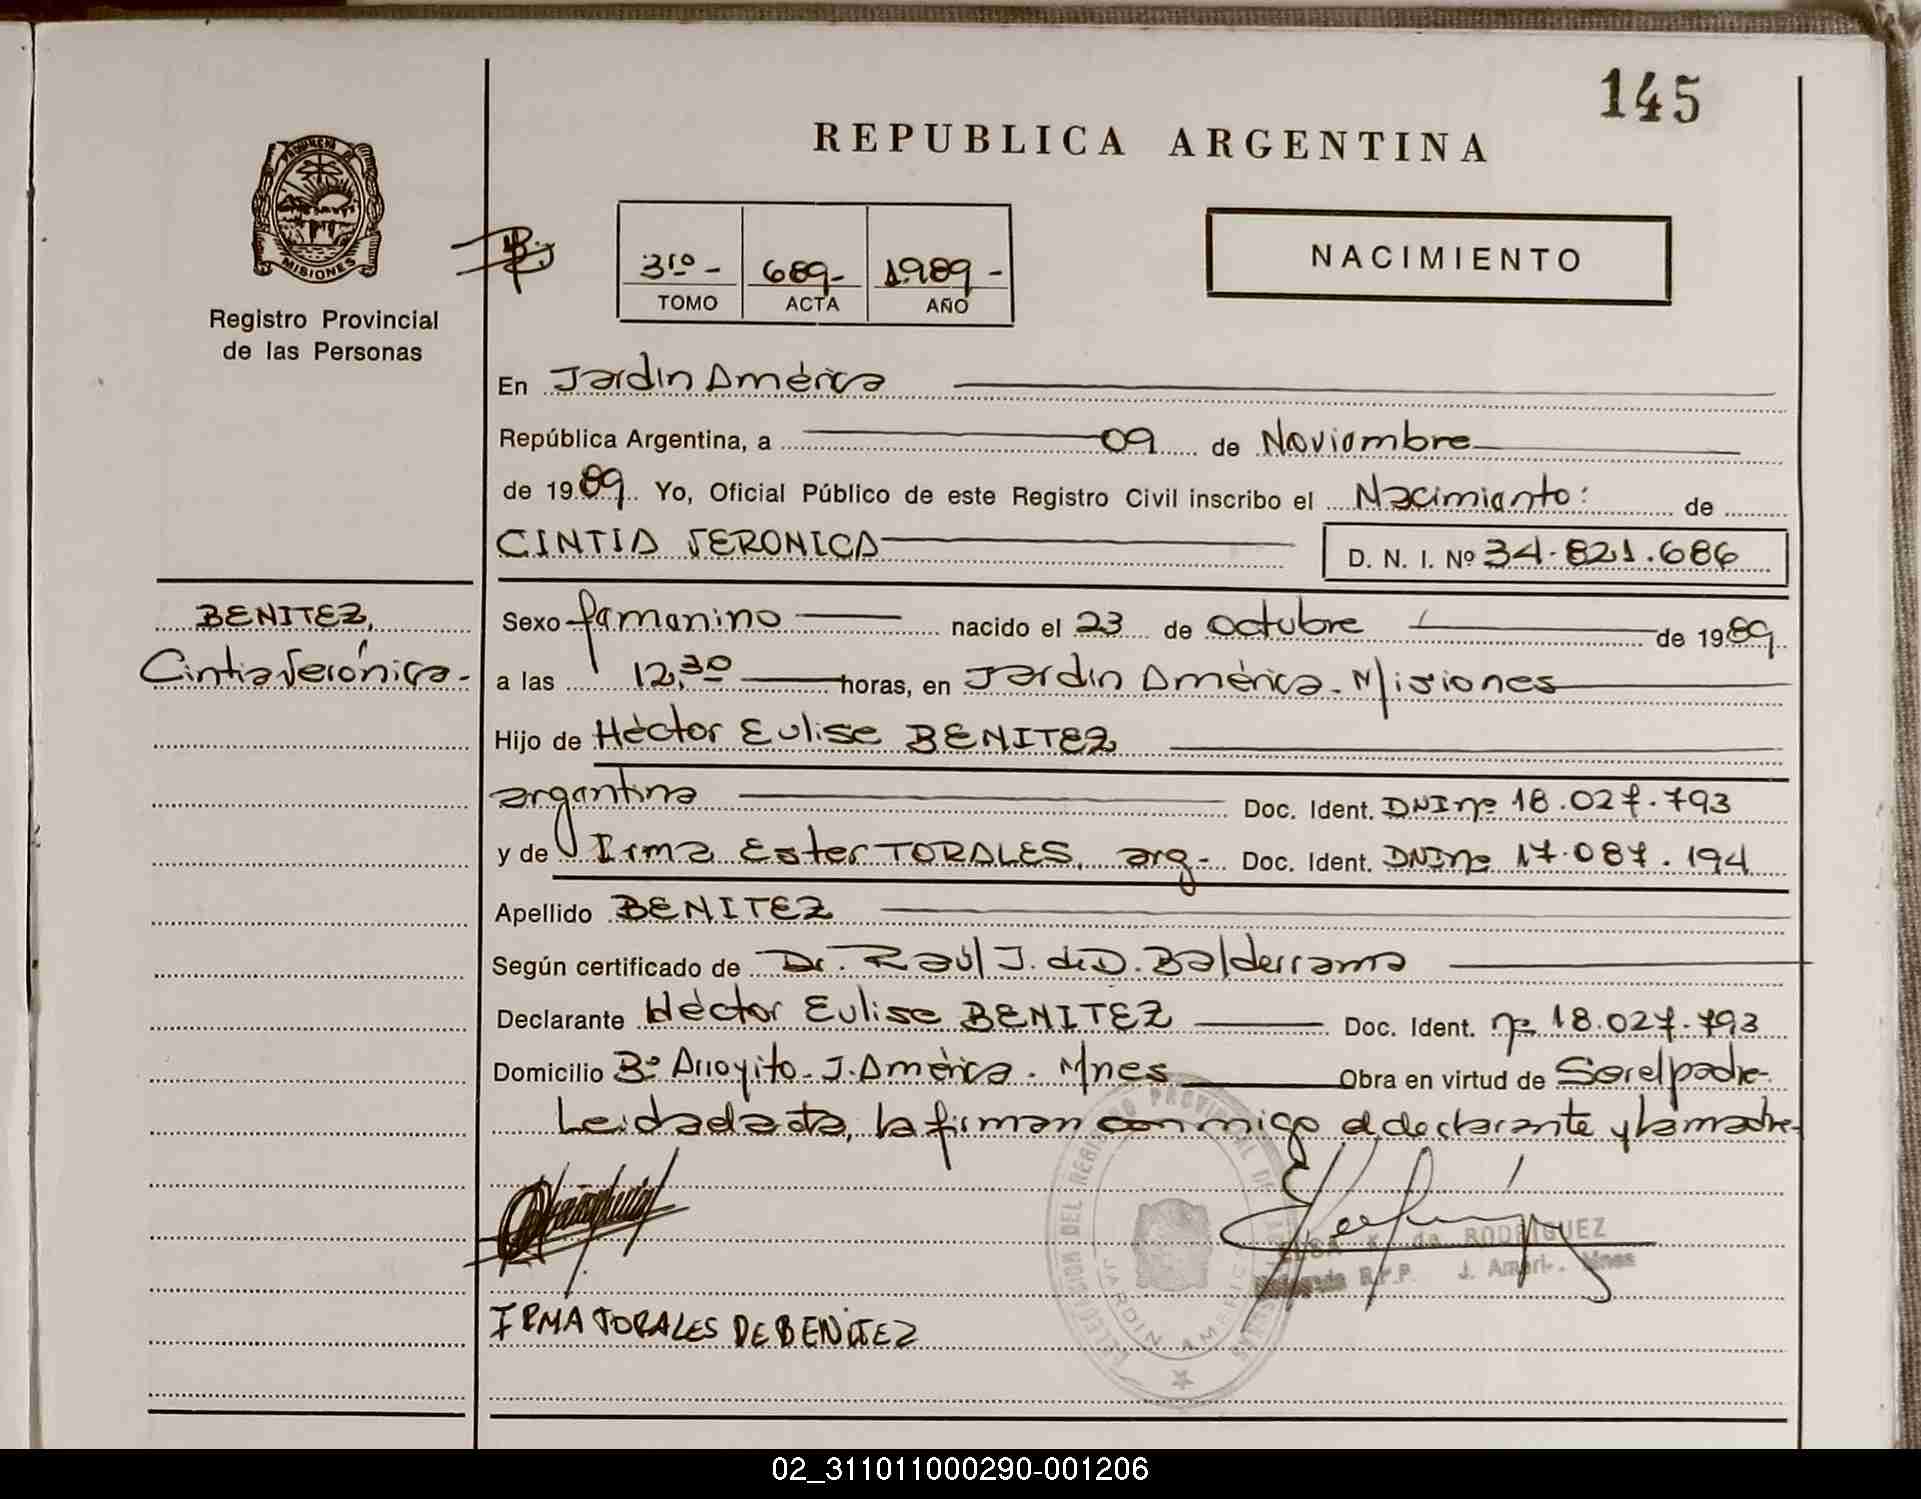 145
REPUBLICA ARGENTINA
PROVINCIA DE
MISIONES
Registro Provincial
de las Personas
3ro - 689- 1989 -
TOMO ACTA AÑO
NACIMIENTO
En Jardin América
República Argentina, a 09 de Noviembre
de 1989 Yo, Oficial Público de este Registro Civil inscribo el Nacimiento: de
CINTIA VERONICA D. N. I. Nº 34.821.686
BENITEZ,
Cintia Verónica.-
Sexo femenino nacido el 23 de octubre de 1989
a las 12,30 horas, en Jardin América. Misiones
Hijo de Héctor Eulise BENITEZ
argentina Doc. Ident. DNI nº 18.027.793
y de Irma Ester TORALES, arg- Doc. Ident. DNI nº 17.087.194
Apellido BENITEZ
Según certificado de Dr. Raúl J. de D. Balderrama
Declarante Héctor Eulise BENITEZ Doc. Ident. nº 18.027.793
Domicilio Bº Arroyito. J. América. Mnes Obra en virtud de Ser el padre-
Leida el acta, la firman conmigo el declarante y la madre-
DELEGACION DEL REGISTRO PROVINCIAL DE LAS PERSONAS
JARDIN AMERICA
ELSA K. de RODRIGUEZ
Delegada R.P.P. J. Améri. Mnes
IRMA TORALES DE BENITEZ
02_311011000290-001206